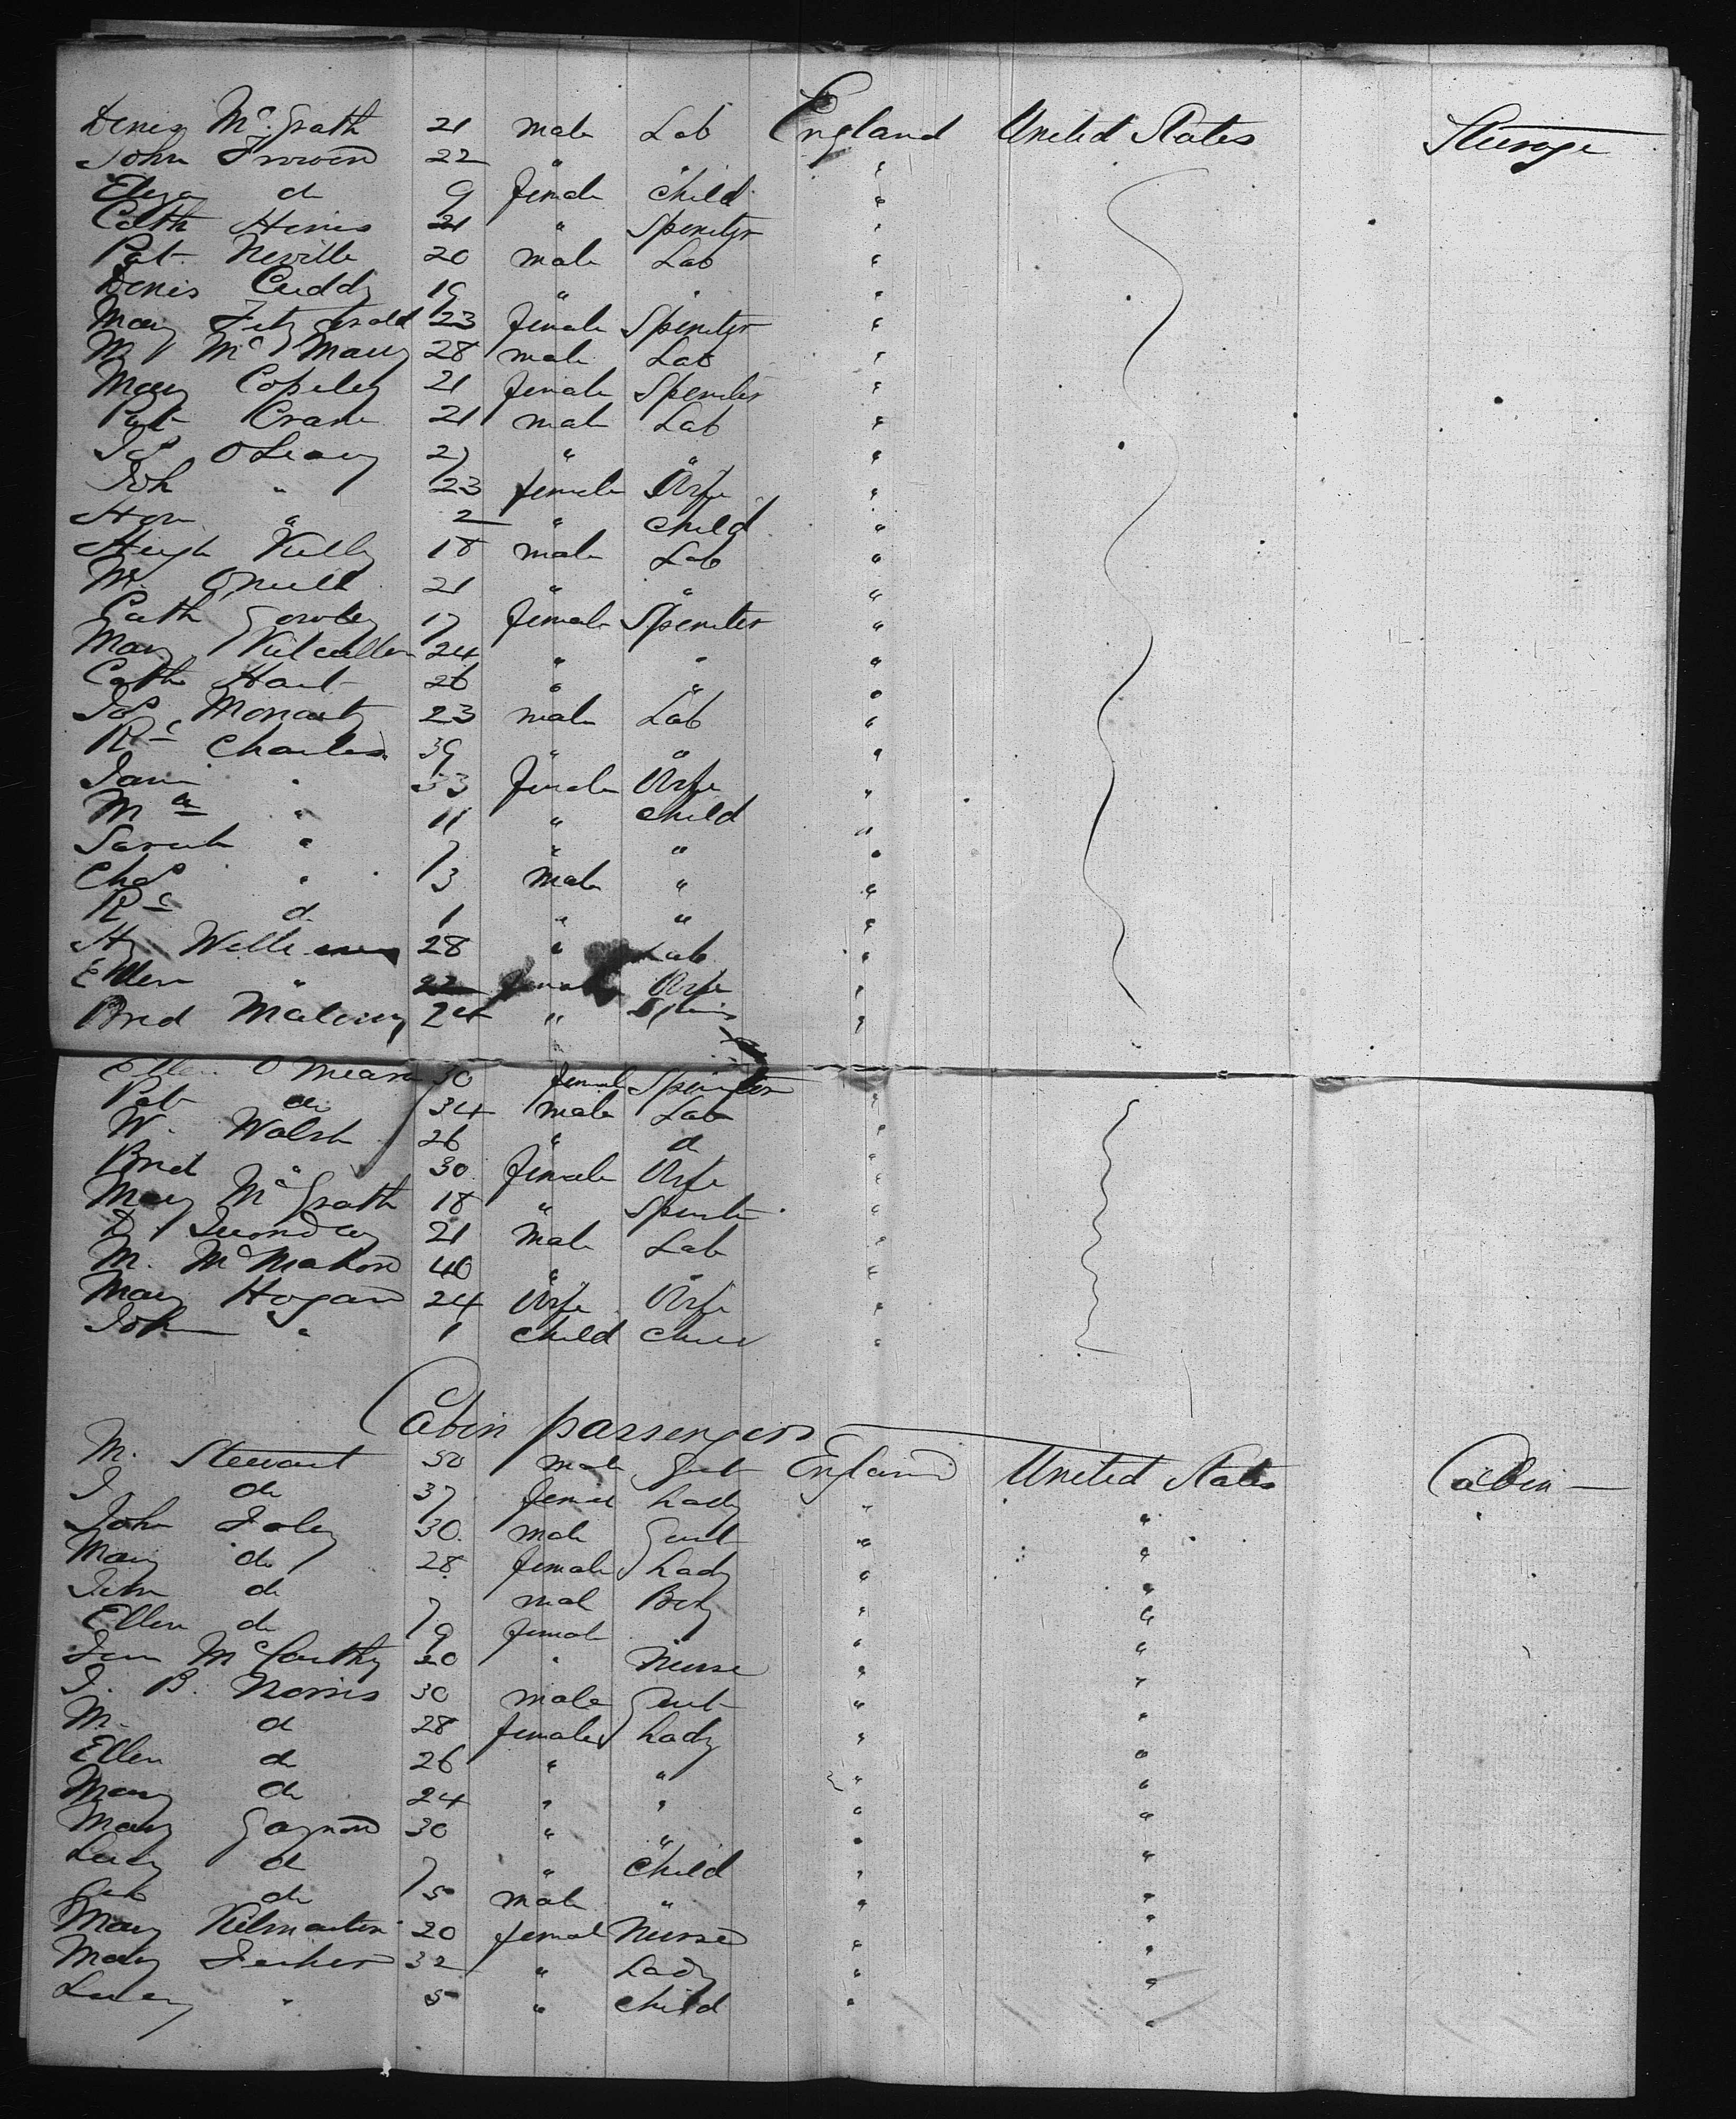 Denis McGrath 21 male Lab England United States Steerage
John 22 " " "
Eliza do 9 female child "
Cath 21 " Spinster "
Pat Neville 20 male Lab "
Denis Cuddy 19 " " "
Mary Fitzgerald 23 female Spinster "
28 male Lab "
Mary Copeley 21 female Spinster "
Pat Crane 21 male Lab "
Jas OLeary 27 " " "
Joh " 23 female Wife "
Hon " 2 " child "
Hugh Kelly 18 male Lab "
Oneill 21 " " "
Cath 17 female Spinster "
Mary Kilcullen 24 " " "
Cath Hart 26 " " "
Jas Moriarty 23 male Lab "
Rd Charles 39 " " "
Jane " 33 female Wife "
Ma " 11 " child "
Sarah " 7 " " "
Chas " 3 male " "
Rd do 1 " " "
Hy 28 " Lab "
Ellen " 22 female Wife "
Brid 24 " Spins "
Ellen OMeara 30 female Spinster
Pat do 34 male Lab "
W. Walsh 26 " do "
Brid " 30 female Wife "
Mary McGrath 18 " Spinster "
D. 21 male Lab "
M. McMahon 40 " " "
Mary Hogan 24 Wife Wife "
John " 1 child child "
Cabin passengers
M. Stewart 50 male Gent England United States Cabin
J. do 37 female Lady " "
John Foley 30 male Gent " "
Mary do 28 female Lady " "
do 7 male Boy " "
Ellen do 9 female " "
McCarthy 20 " Nurse " "
J. B. Norris 30 male Gent " "
M. do 28 female Lady " "
Ellen do 26 " " " "
Mary do 24 " " " "
Mary Gaynor 30 " " " "
Lucy do 7 " child " "
do 5 male " " "
Mary Kilmartin 20 female Nurse " "
Mary 32 " Lady " "
Lucy " 5 " child " "